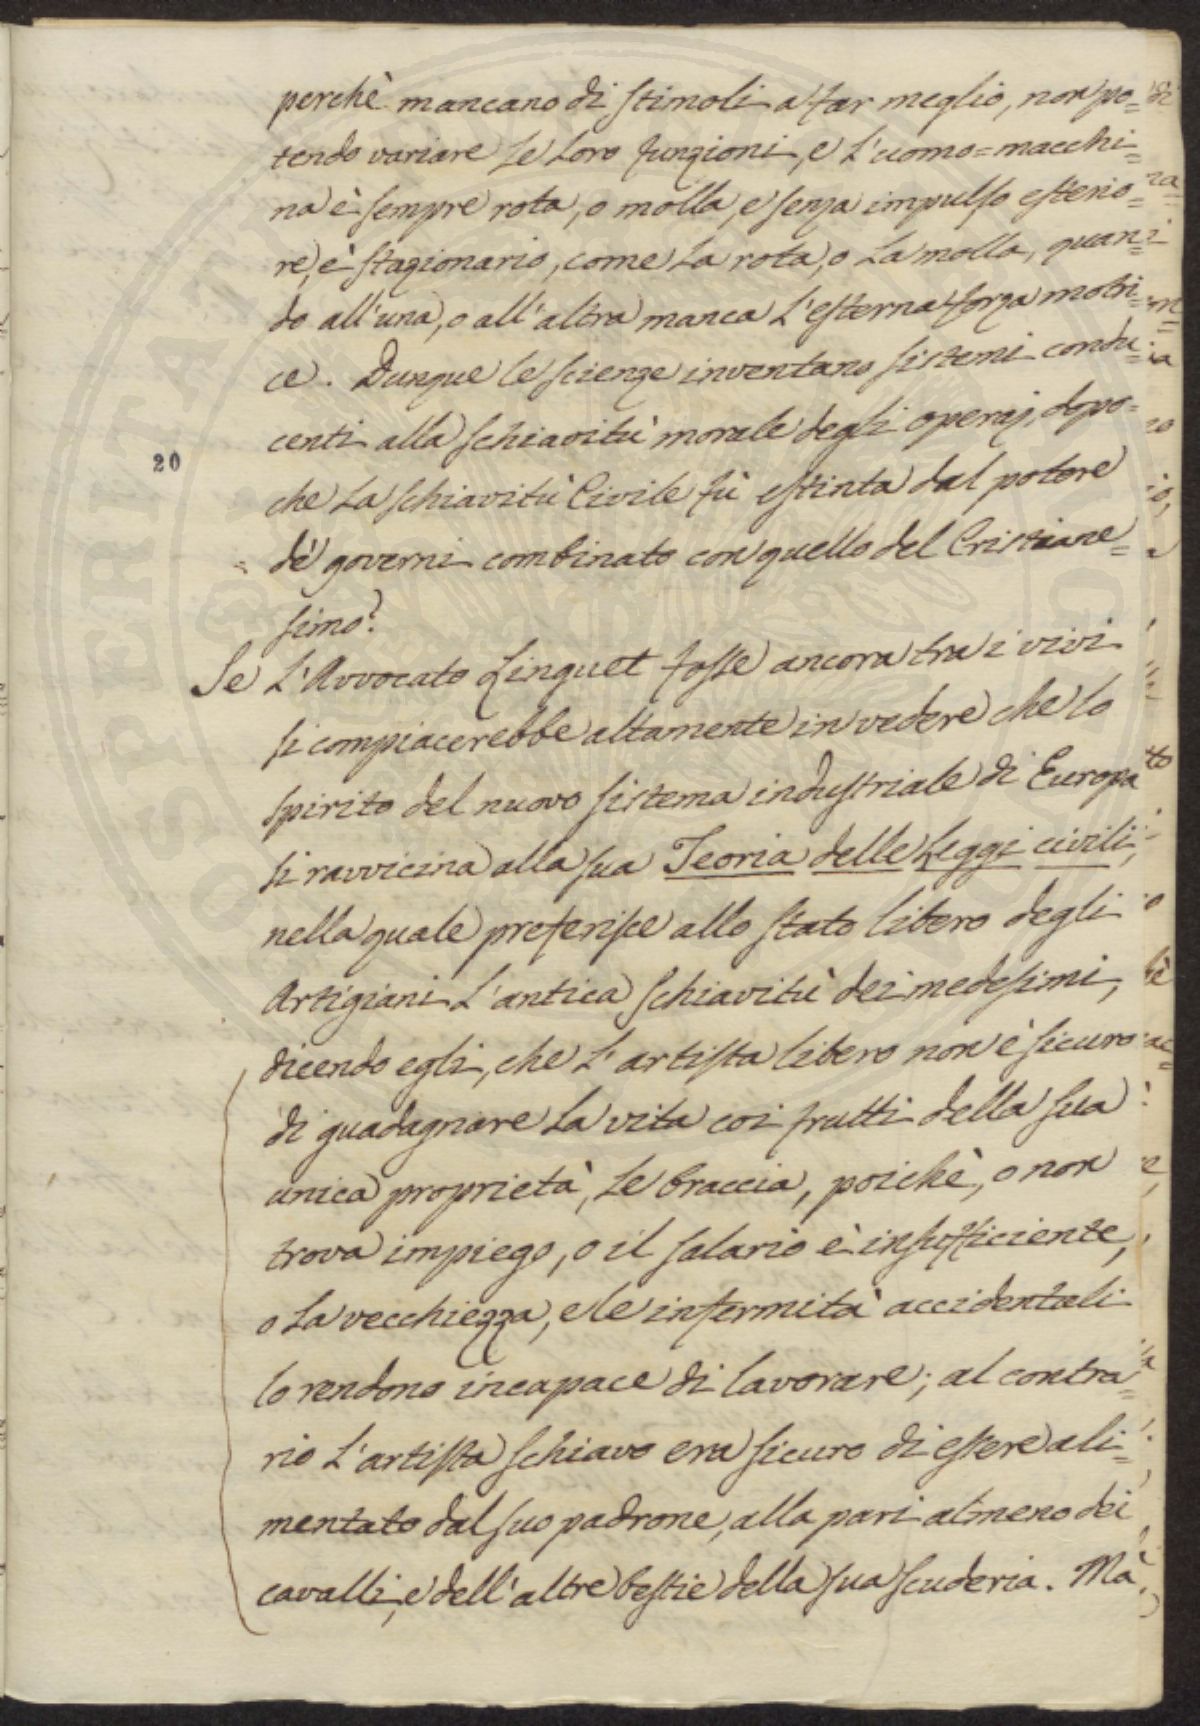 perchè mancano di stimoli a far meglio, non po=
tendo variare le loro funzioni, e l'uomo=macchi=
na è sempre rota, o molla, e senza impulso esterio=
re, è stazionario, come la rota, o la molla, quan=
do all'una, o all'altra manca l'esterna forza motri=
ce. Dunque le scienze inventano sistemi condu=
centi alla schiavitù morale degli operaj, dopo=
20
che la schiavitù Civile fù estinta dal potere
de' governi combinato con quello del Cristiane=
simo?
Se l'Avvocato Linguet fosse ancora tra i vivi
si compiacerebbe altamente in vedere che lo
spirito del nuovo sistema industriale di Europa
si ravvicina alla sua Teoria delle Leggi civili,
nella quale preferisce allo stato libero degli
Artigiani l'antica schiavitù dei medesimi,
dicendo egli, che l'artista libero non è sicuro
di guadagnare la vita coi frutti della sua
unica proprietà, le braccia, poichè, o non
trova impiego, o il salario è insufficiente,
o la vecchiezza, e le infermità accidentali
lo rendono incapace di lavorare; al contra=
rio l'artista schiavo era sicuro di essere ali=
mentato dal suo padrone, alla pari almeno dei
cavalli, e dell'altre bestie della sua scuderia. Mà